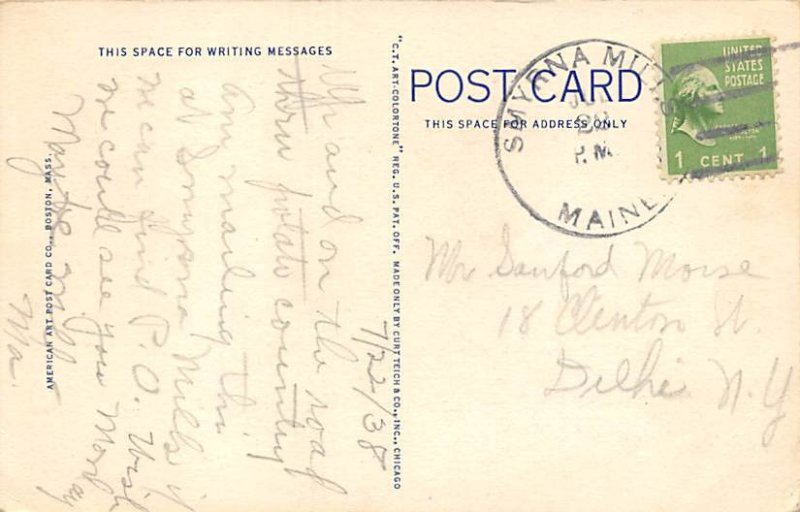 THIS SPACE FOR WRITING MESSAGES
7/22/38
Up and on the road
thru potato country
am mailing this
at Smyrna Mills if
we can find P.O. Wish
we could see you Monday
Maybe will
Ma.
AMERICAN ART POST CARD CO., BOSTON, MASS.
"C.T. ART-COLORTONE" REG. U.S. PAT. OFF. MADE ONLY BY CURT TEICH & CO., INC., CHICAGO
POST CARD
THIS SPACE FOR ADDRESS ONLY
SMYRNA MILLS
P.M.
MAINE
UNITED
STATES
POSTAGE
1 CENT 1
Mr Sanford Morse
18 Clenton St.
Delhi N.Y